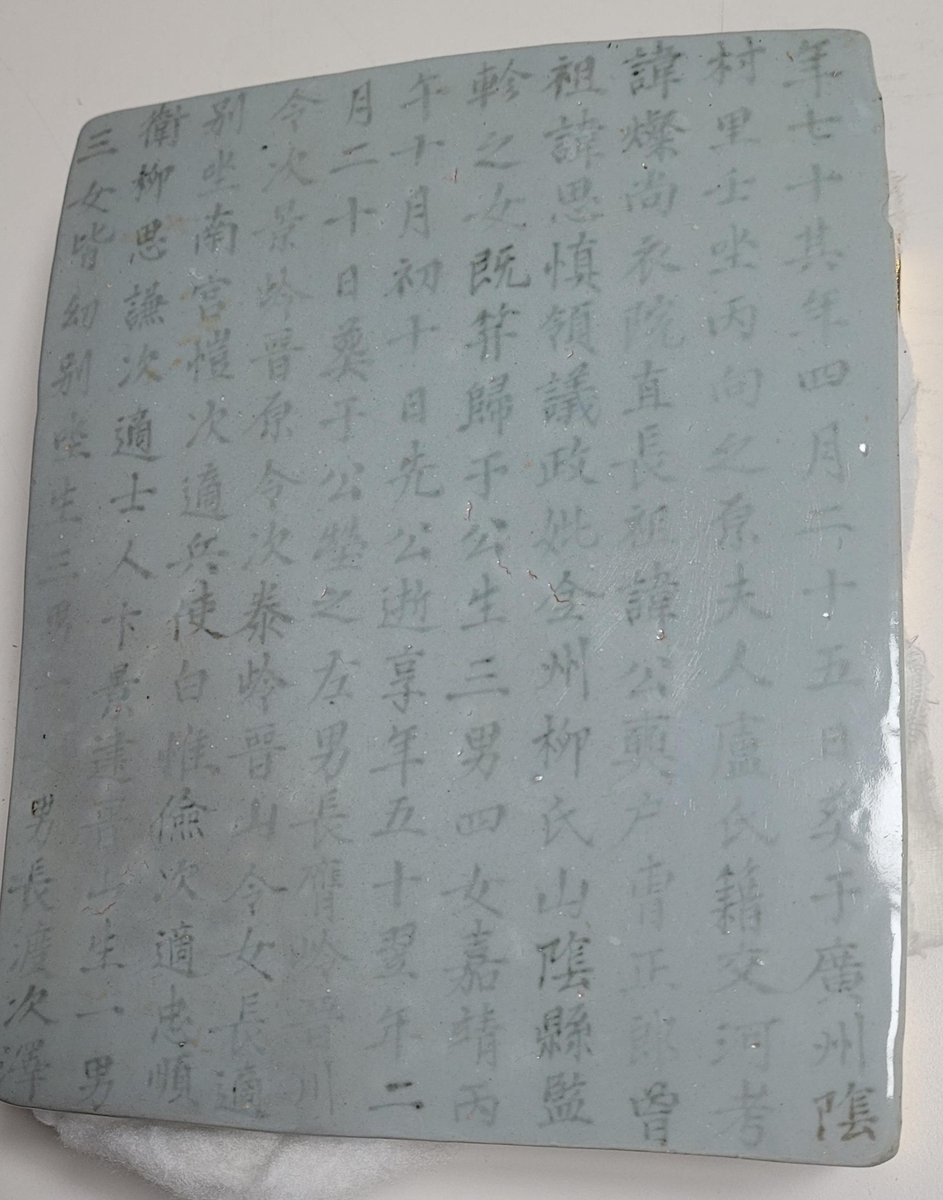 年七十其年四月二十五日葬于廣州陰
村里壬坐丙向之原夫人盧氏籍交河考
諱燦尚衣院直長祖諱公奭户曹正郎曾
祖諱思愼領議政妣全州柳氏山陰縣監
軫之女既笄歸于公生三男四女嘉靖丙
午十月初十日先公逝享年五十翌年二
月二十日葬于公塋之左男長膺岭晋川
令次景岭晋原令次泰岭晋山令女長適
别坐南宫愷次適兵使白惟儉次適忠順
衛柳思謙次適士人卞景達晋山生一男
三女皆幼别坐生三男一
男長渡次澤